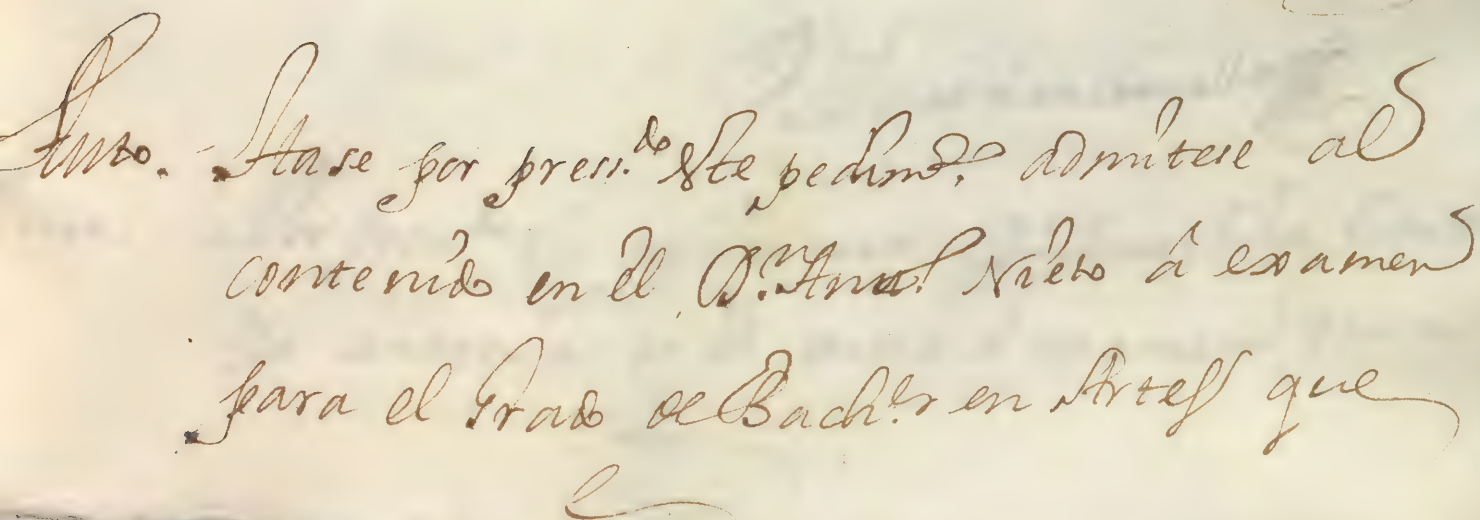 Auto. Hase por press.do este pedim.to admitese al
contenido en el D.n Ant.o Nieto â examen
para el Grado de Bach.er en Artes que